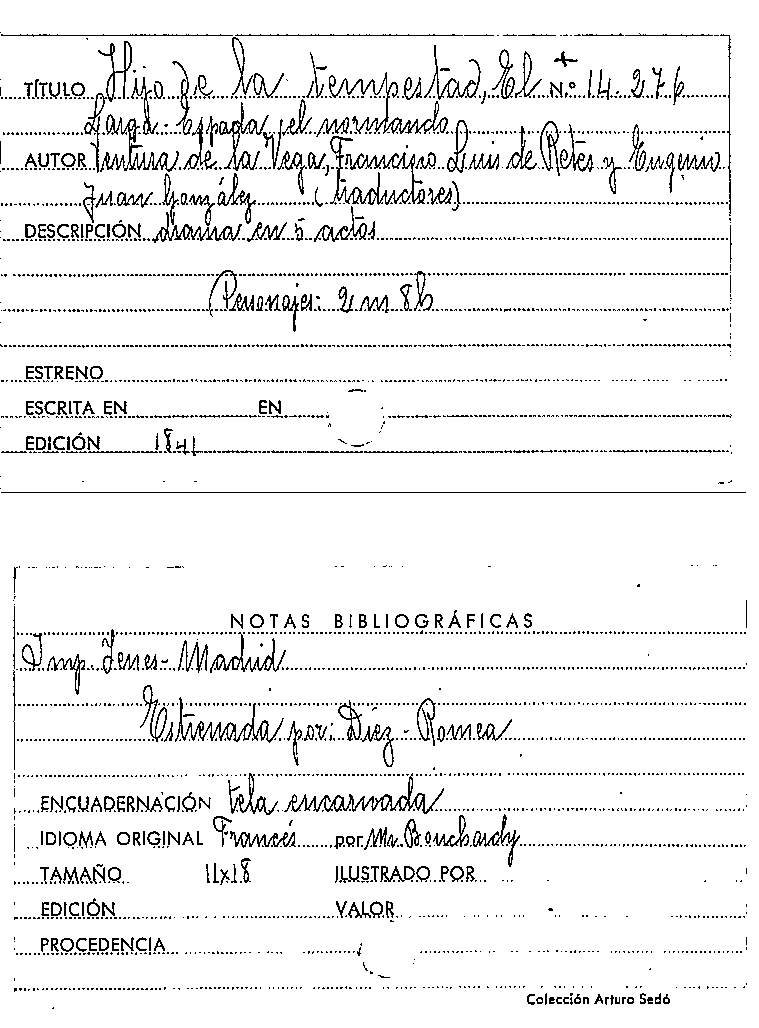 TÍTULO Hijo de la tempestad, El N.º 14.276
Larga-Espada, el normando
AUTOR Ventura de la Vega, Francisco Luis de Retes y Eugenio
Juan González (traductores)
DESCRIPCIÓN drama en 5 actos
Personajes: 2 m 8 h
ESTRENO
ESCRITA EN EN
EDICIÓN 1841
NOTAS BIBLIOGRÁFICAS
Imp. Yenes - Madrid
Estrenada por: Díez - Romea
ENCUADERNACIÓN tela encarnada
IDIOMA ORIGINAL Francés por Mr. Bouchardy
TAMAÑO 11x18 ILUSTRADO POR
EDICIÓN VALOR
PROCEDENCIA
Colección Arturo Sedó